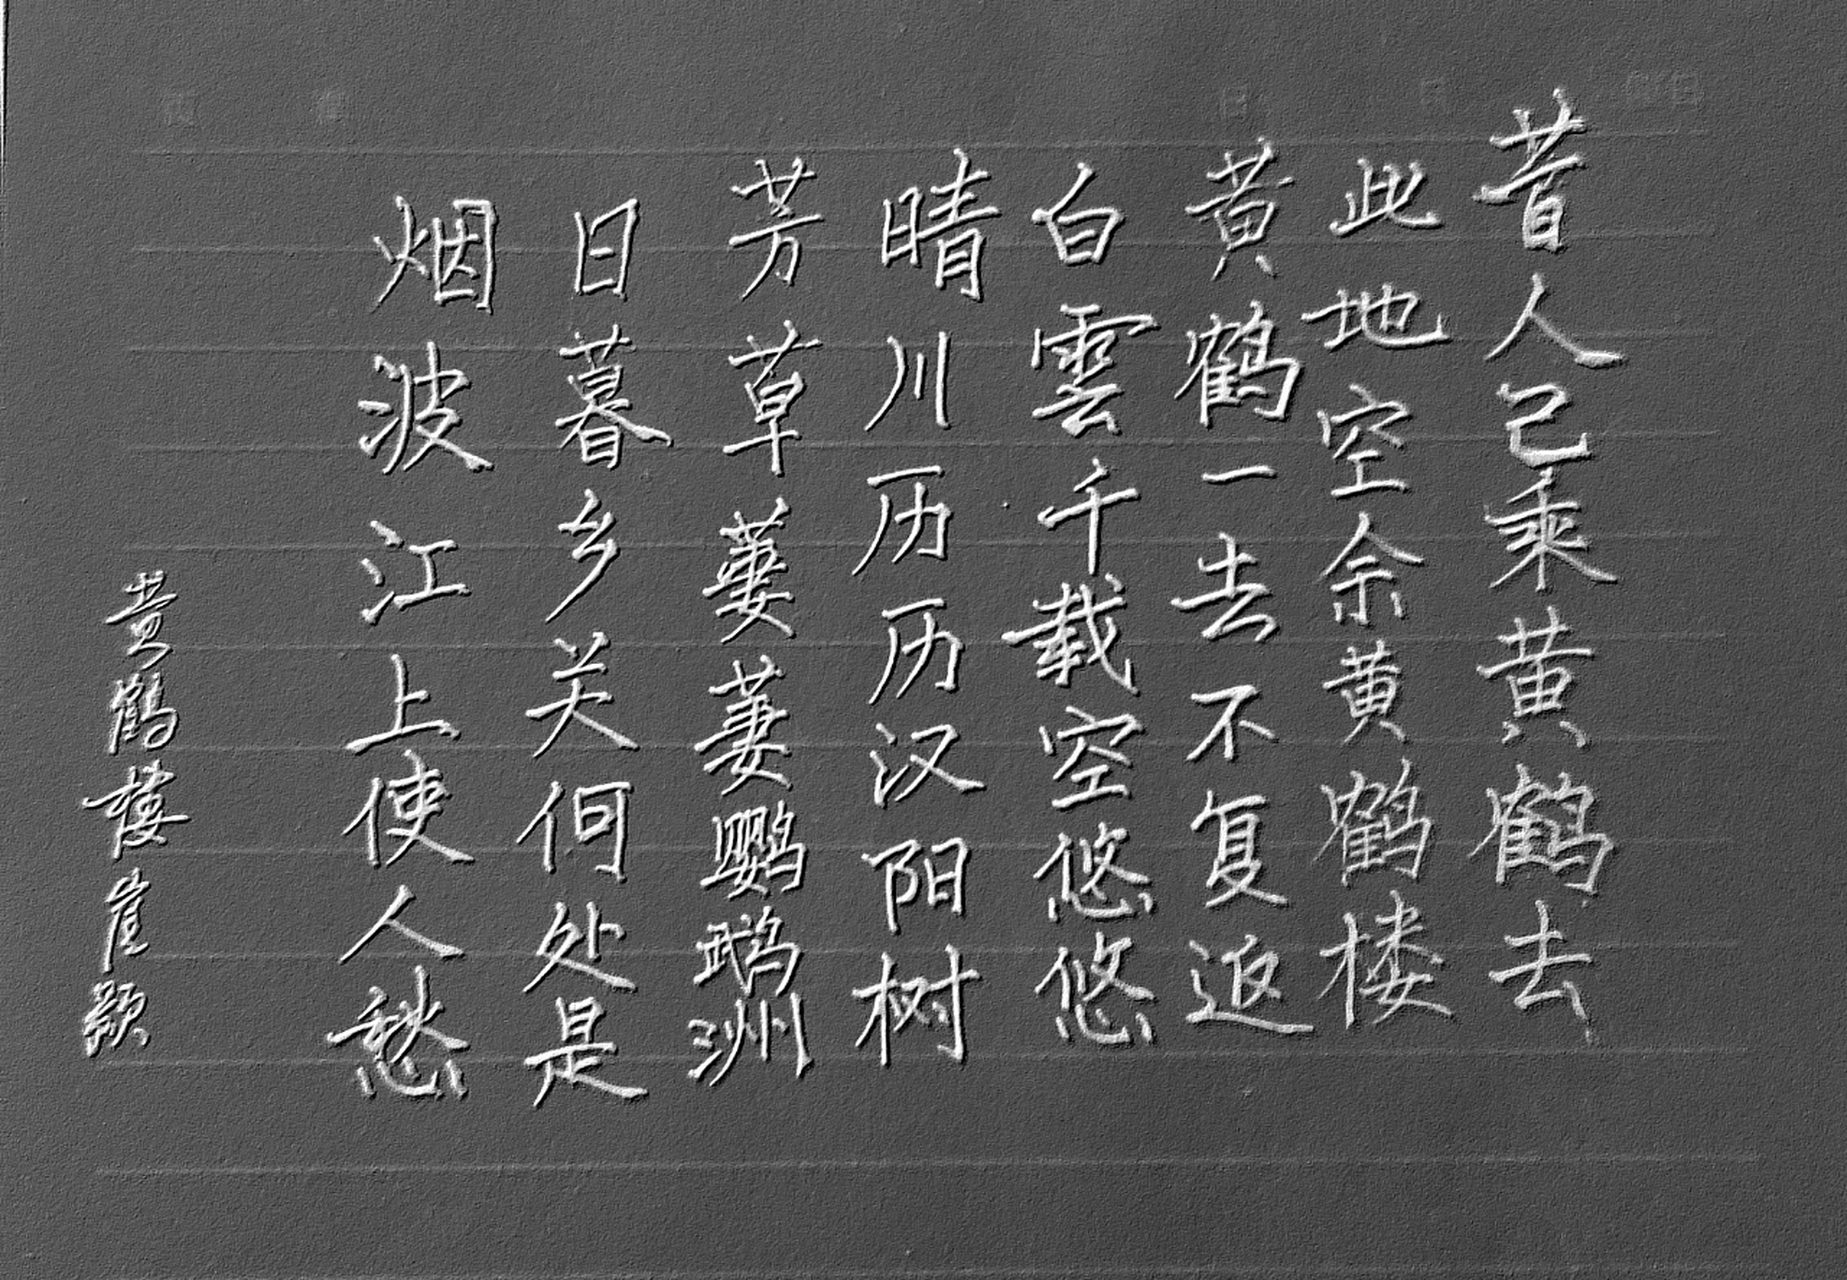 昔人已乘黄鹤去
此地空余黄鹤楼
黄鹤一去不复返
白雲千载空悠悠
晴川历历汉阳树
芳草萋萋鹦鹉洲
日暮乡关何处是
烟波江上使人愁
黄鹤楼崔颢